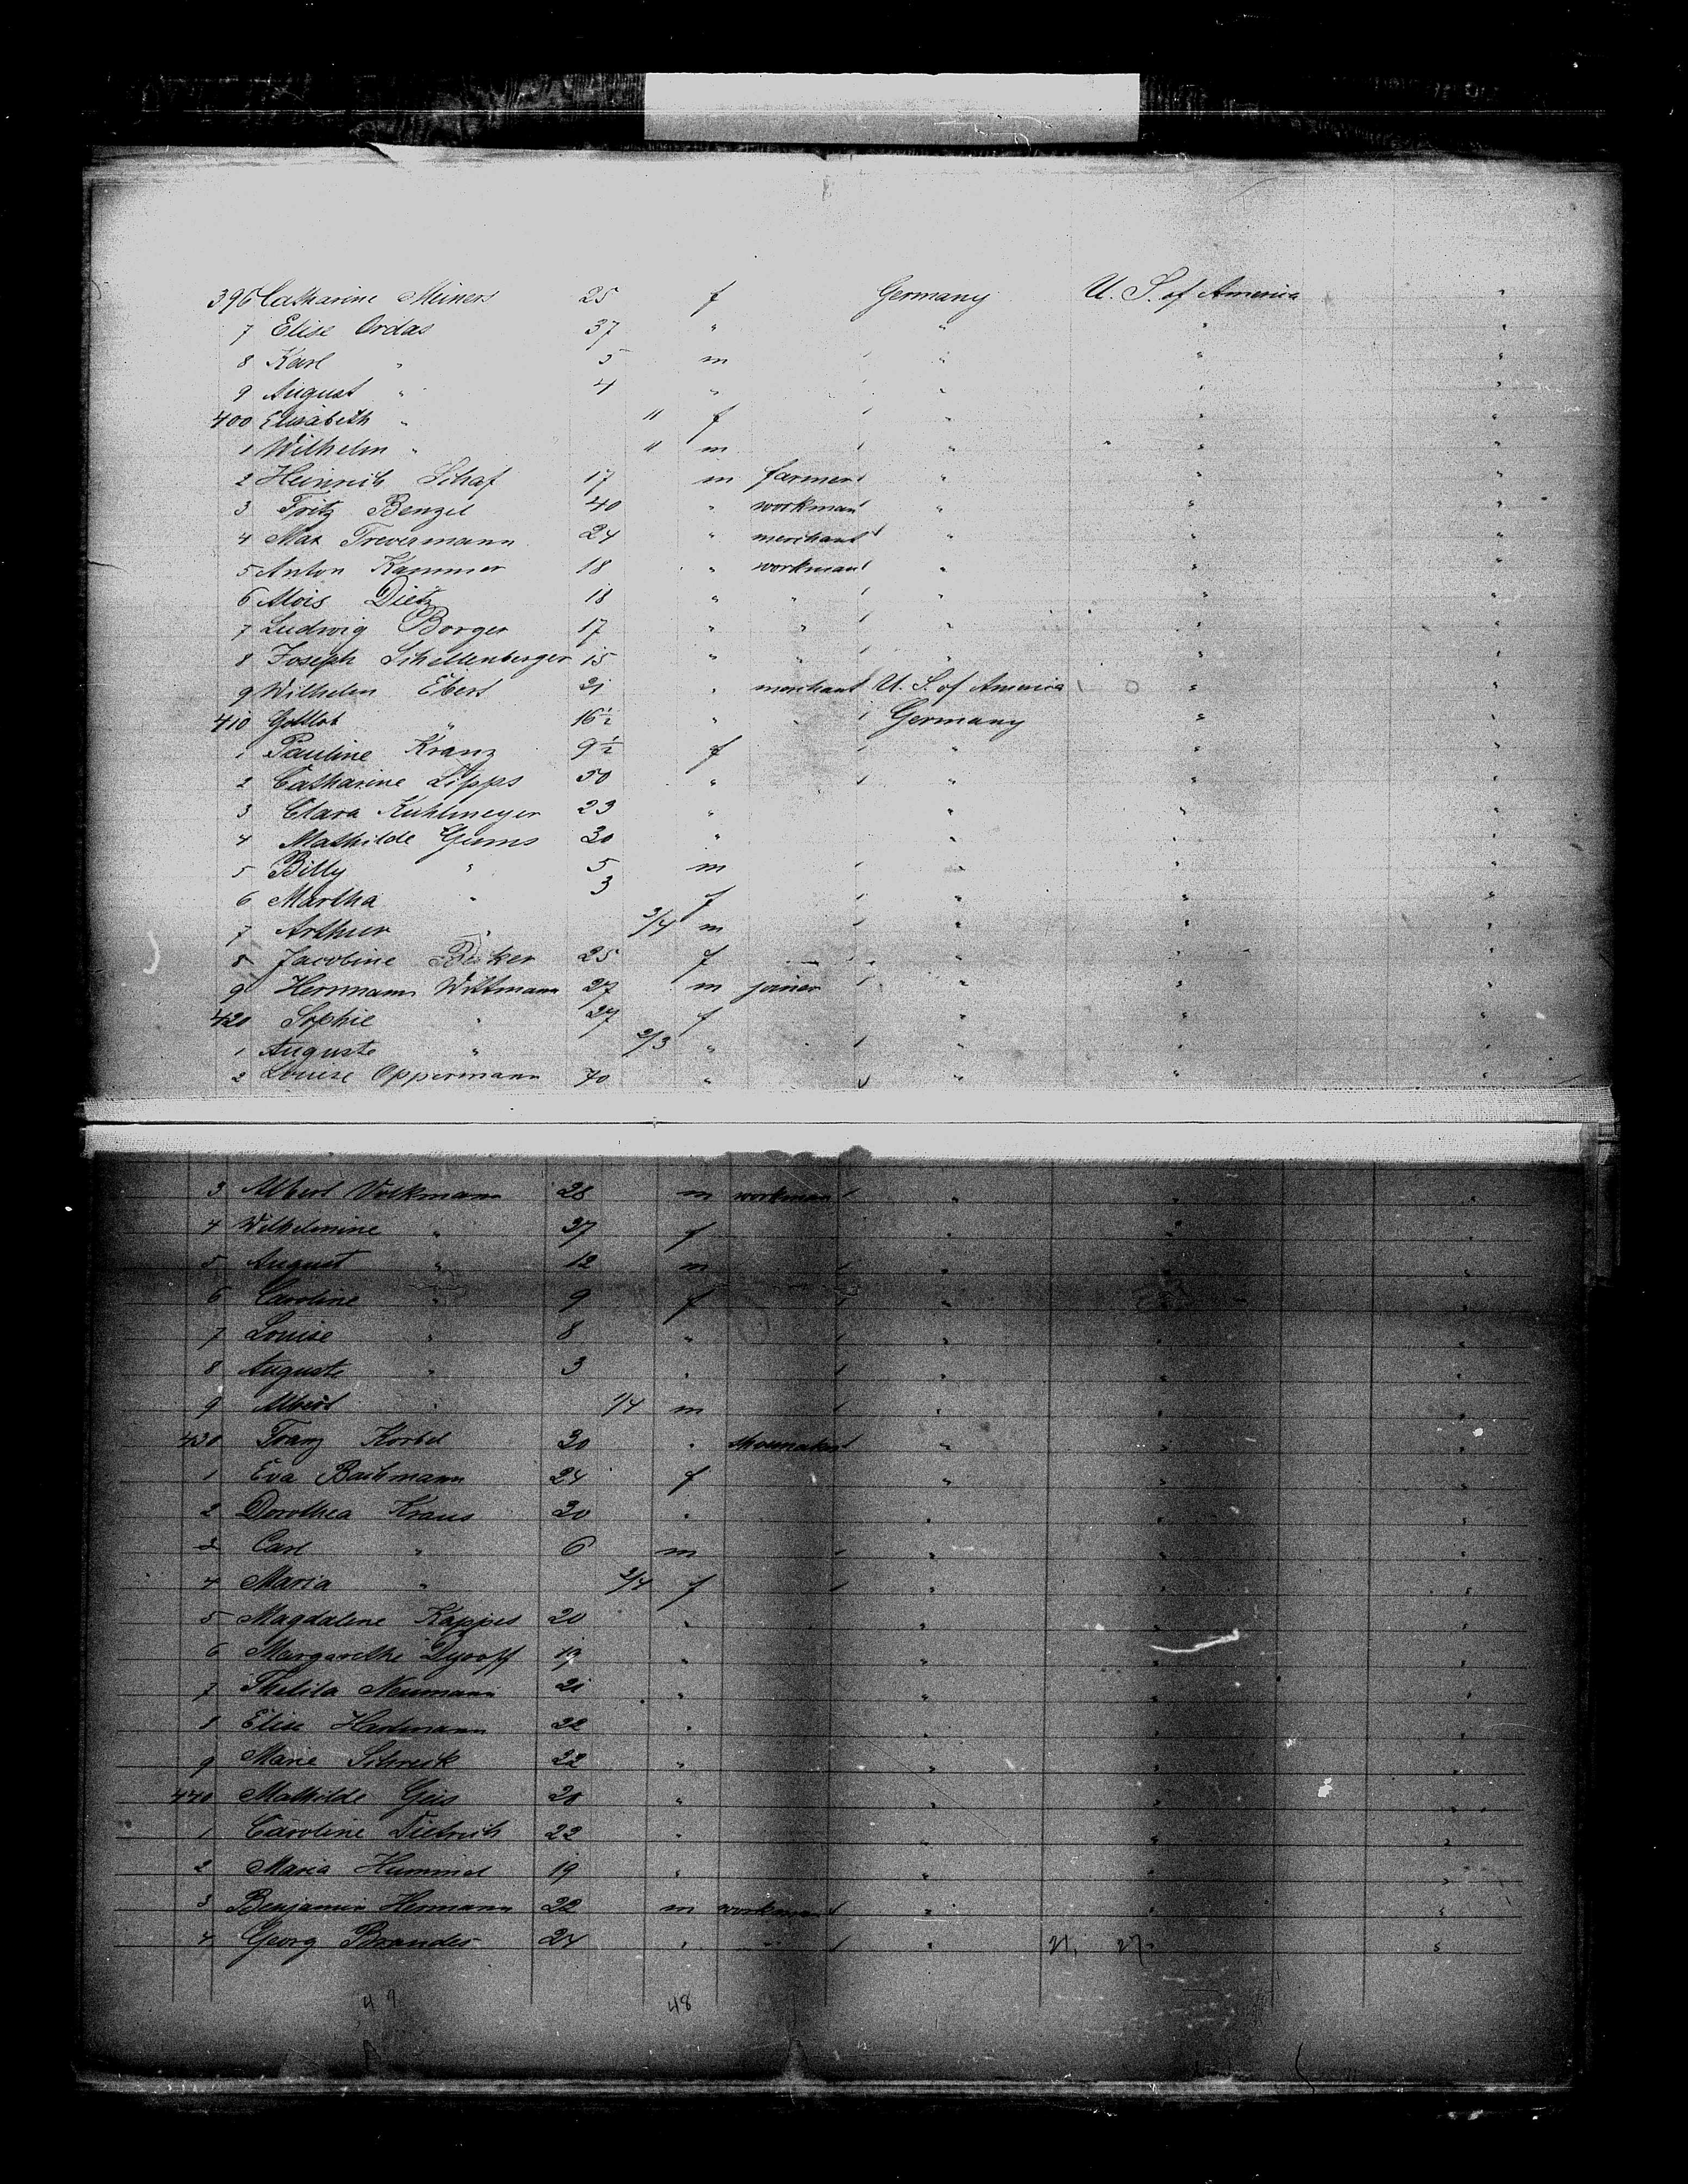 396 Catharine Meiners 25 f Germany U. S. of America "
7 Elise Ordas 37 " " " "
8 Karl " 5 m " " "
9 August " 4 " " " "
400 Elisabeth " 11 f " " "
1 Wilhelm " 11 m " " "
2 Heinrich Schaf 17 m farmer " " "
3 Fritz Benzel 40 " workman " " "
4 Max Trevermann 24 " merchant " " "
5 Anton Kammer 18 " workman " " "
6 Alois Dietz 18 " " " " "
7 Ludwig Borger 17 " " " " "
8 Joseph Schellenberger 15 " " " " "
9 Wilhelm Ebert 21 " merchant U. S. of America " "
410 Gottlob " 16 1/2 " " Germany " "
1 Pauline Kranz 9 1/2 f " " "
2 Catharine Lipps 50 " " " "
3 Clara Kuhlmeyer 23 " " " "
4 Mathilde Gums 30 " " " "
5 Billy " 5 m " " "
6 Martha " 3 f " " "
7 Arthur " 3/4 m " " "
8 Jacobine 25 f " " "
9 Herrmann Wittmann 27 m joiner " " "
420 Sophie " 27 f " " "
1 Auguste " 2/3 " " " "
2 Louise Oppermann 70 " " " "
3 Albert Volkmann 28 m workman " " "
4 Wilhelmine " 37 f " " "
5 August " 12 m " " "
6 Caroline " 9 f " " "
7 Louise " 8 " " " "
8 Auguste " 3 " " " "
9 Albert " 1/4 m " " "
430 Franz Korbel 30 " shoemaker " " "
1 Eva Bachmann 24 f " " "
2 Dorothea Kraus 30 " " " "
3 Carl " 6 m " " "
4 Maria " 3/4 f " " "
5 Magdalene Kappes 20 " " " "
6 Margarethe Dyroff 19 " " " "
7 Neumann 21 " " " "
8 Elise Hartmann 22 " " " "
9 Marie Schreck 22 " " " "
440 Mathilde Geis 20 " " " "
1 Caroline Dietrich 22 " " " "
2 Maria Hummel 19 " " " "
3 Benjamin Hermann 22 m workman " " "
4 Georg Brandes 24 " " " 21, 27 "
49 48